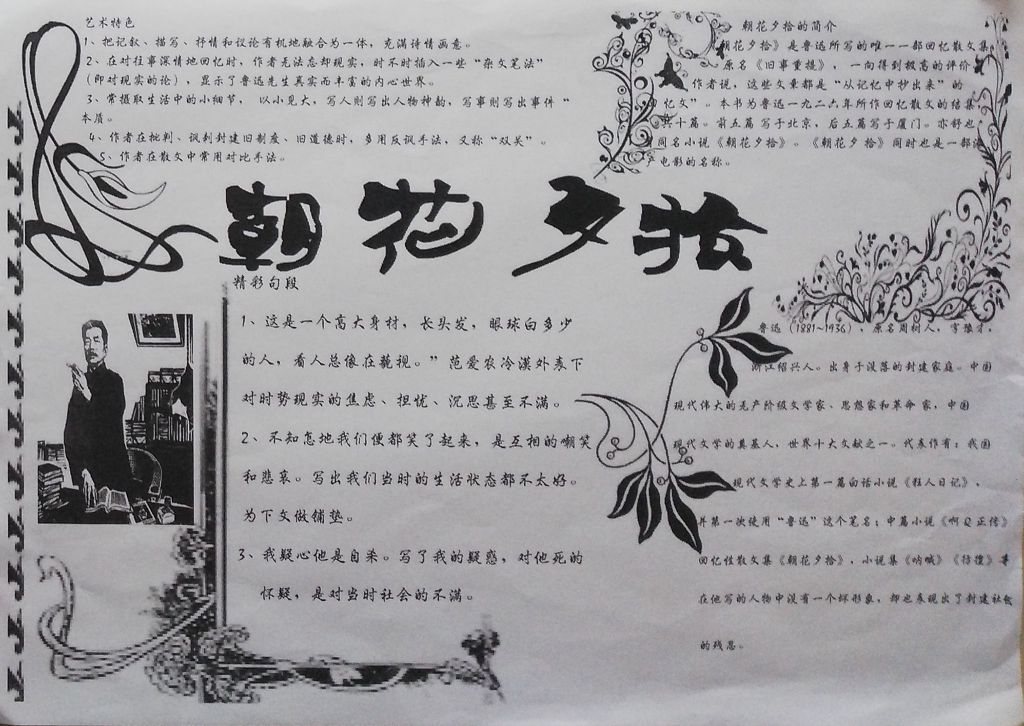 艺术特色
1、把记叙、描写、抒情和议论有机地融合为一体，充满诗情画意。
2、在对往事深情地回忆时，作者无法忘却现实，时不时插入一些“杂文笔法”
（即对现实的论），显示了鲁迅先生真实而丰富的内心世界。
3、常摄取生活中的小细节， 以小见大，写人则写出人物神韵，写事则写出事件“
本质。
4、作者在批判、讽刺封建旧制度、旧道德时，多用反讽手法，又称“双关”。
5、作者在散文中常用对比手法。
朝花夕拾的简介
朝花夕拾》是鲁迅所写的唯一一部回忆散文集
原名《旧事重提》，一向得到极高的评价
作者说，这些文章都是“从记忆中抄出来”的
回忆文”。本书为鲁迅一九二六年所作回忆散文的结集
共十篇。前五篇写于北京，后五篇写于厦门。亦舒也
同名小说《朝花夕拾》。《朝花夕拾》同时也是一部
电影的名称。
朝花夕拾
精彩句段
1、这是一个高大身材，长头发，眼球白多少
的人，看人总像在藐视。” 范爱农冷漠外表下
对时势现实的焦虑、担忧、沉思甚至不满。
2、不知怎地我们便都笑了起来，是互相的嘲笑
和悲哀。写出我们当时的生活状态都不太好。
为下文做铺垫。
3、我疑心他是自杀。写了我的疑惑，对他死的
怀疑，是对当时社会的不满。
鲁迅（1881~1936），原名周树人，字豫才，
浙江绍兴人。出身于没落的封建家庭。中国
现代伟大的无产阶级文学家、思想家和革命家，中国
现代文学的奠基人，世界十大文献之一。代表作有：我国
现代文学史上第一篇白话小说《狂人日记》、
并第一次使用“鲁迅”这个笔名；中篇小说《啊Q正传》
回忆性散文集《朝花夕拾》，小说集《呐喊》《彷徨》等
在他写的人物中没有一个坏形象，却也表现出了封建社会
的残忍。